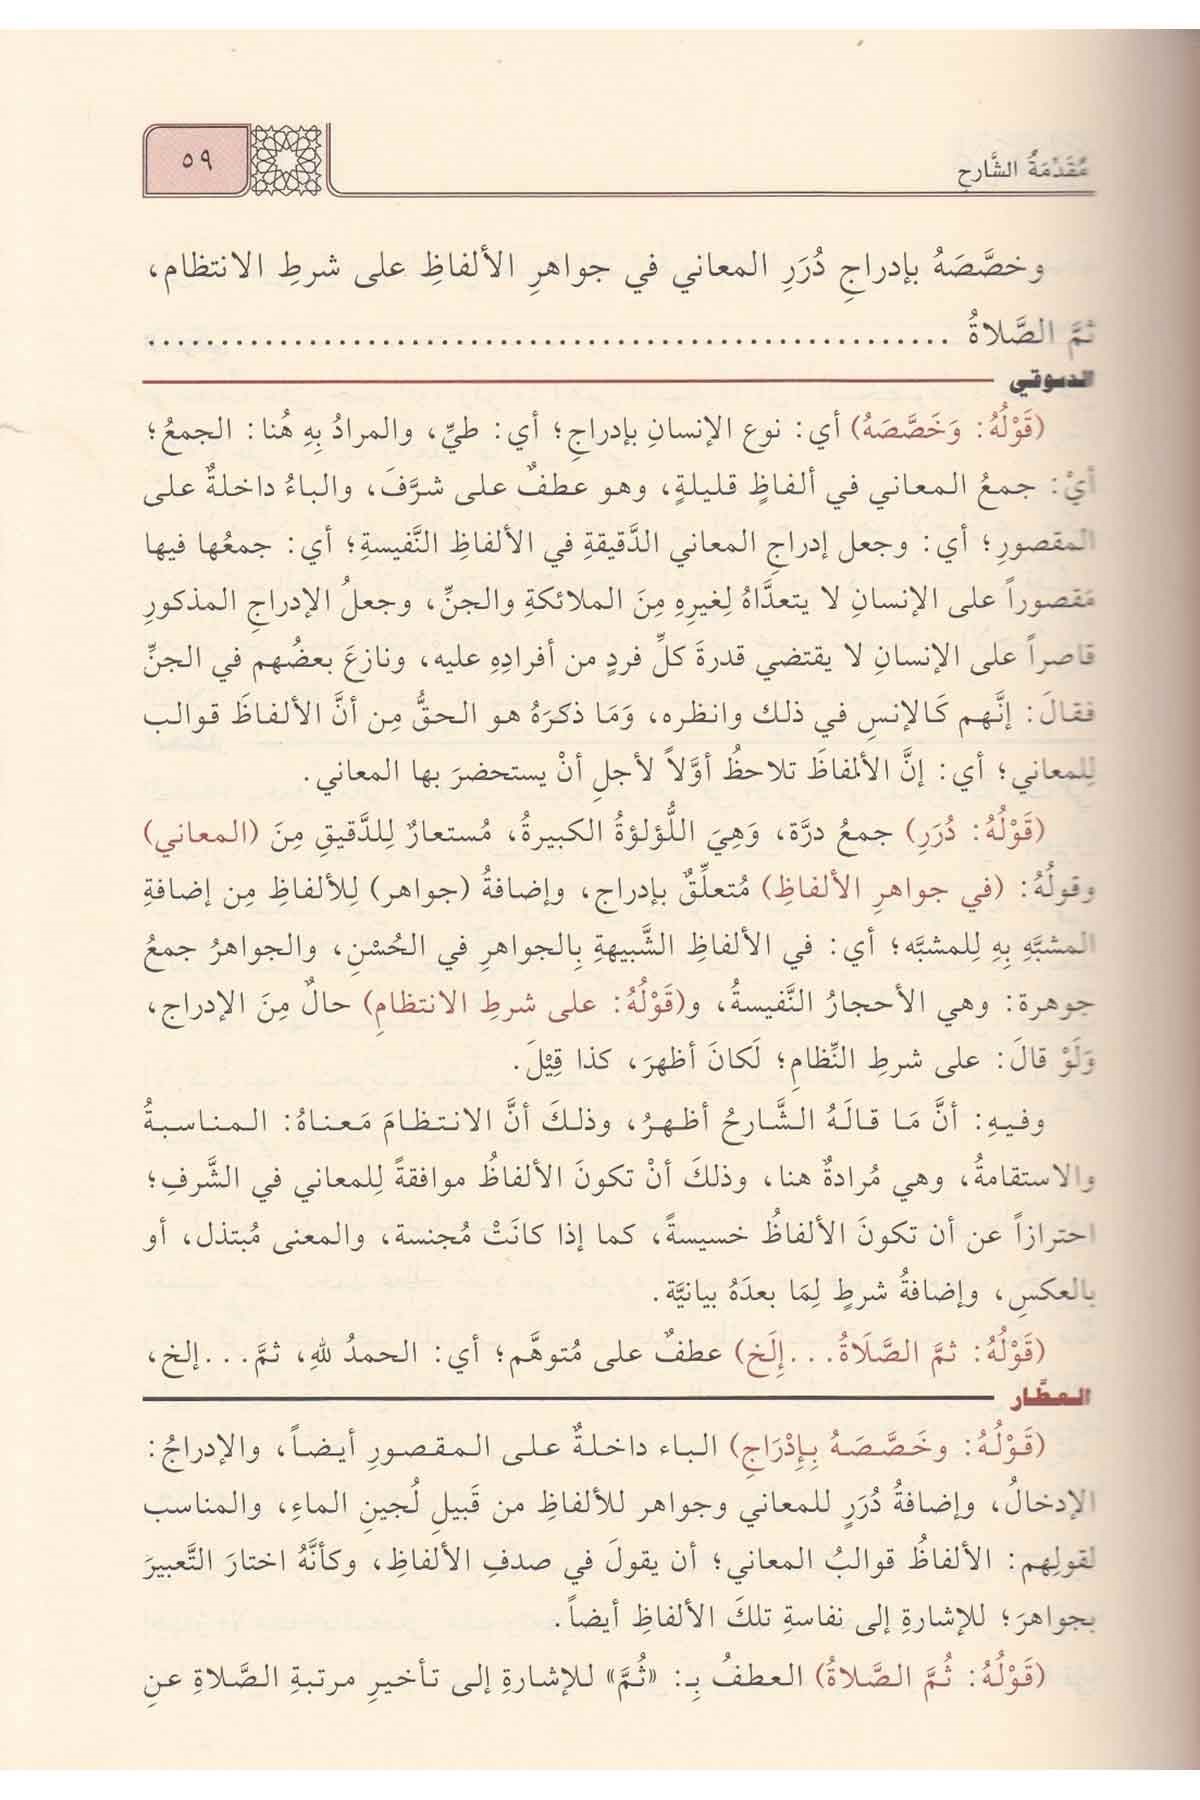 مُقَدِّمَةُ الشَّارِحِ
٥٩
وخصَّصَهُ بإدراجِ دُرَرِ المعاني في جواهرِ الألفاظِ على شرطِ الانتظام،
ثمَّ الصَّلاةُ ......................................................
الدسوقي
(قَوْلُهُ: وَخَصَّصَهُ) أي: نوع الإنسانِ بإدراجِ؛ أي: طيِّ، والمرادُ بِهِ هُنا: الجمعُ؛
أيْ: جمعُ المعاني في ألفاظٍ قليلةٍ، وهو عطفٌ على شرَّفَ، والباءُ داخلةٌ على
المقصورِ؛ أي: وجعل إدراجِ المعاني الدَّقيقةِ في الألفاظِ النَّفيسةِ؛ أي: جمعُها فيها
مَقصوراً على الإنسانِ لا يتعدَّاهُ لِغيرِهِ مِنَ الملائكةِ والجنِّ، وجعلُ الإدراجِ المذكورِ
قاصراً على الإنسانِ لا يقتضي قدرةَ كلِّ فردٍ من أفرادِهِ عليه، ونازعَ بعضُهم في الجنِّ
فقالَ: إنَّهم كَالإنسِ في ذلك وانظره، وَمَا ذكرَهُ هو الحقُّ مِن أنَّ الألفاظَ قوالب
لِلمعاني؛ أي: إنَّ الألفاظَ تلاحظُ أوَّلاً لأجلِ أنْ يستحضرَ بها المعاني.
(قَوْلُهُ: دُرَرِ) جمعُ درَّة، وَهِيَ اللُّؤلؤةُ الكبيرةُ، مُستعارٌ لِلدَّقيقِ مِنَ (المعاني)
وقولُهُ: (في جواهرِ الألفاظِ) مُتعلِّقٌ بإدراج، وإضافةُ (جواهر) لِلألفاظِ مِن إضافةِ
المشبَّهِ بِهِ لِلمشبَّه؛ أي: في الألفاظِ الشَّبيهةِ بِالجواهرِ في الحُسْنِ، والجواهرُ جمعُ
جوهرة: وهي الأحجارُ النَّفيسةُ، و(قَوْلُهُ: على شرطِ الانتظامِ) حالٌ مِنَ الإدراج،
وَلَوْ قالَ: على شرطِ النِّظامِ؛ لَكانَ أظهرَ، كذا قِيْلَ.
وفيهِ: أنَّ مَا قالَهُ الشَّارحُ أظهرُ، وذلكَ أنَّ الانتظامَ مَعناهُ: المناسبةُ
والاستقامةُ، وهي مُرادةٌ هنا، وذلكَ أنْ تكونَ الألفاظُ موافقةً لِلمعاني في الشَّرفِ؛
احترازاً عن أن تكونَ الألفاظُ خسيسةً، كما إذا كانَتْ مُجنسة، والمعنى مُبتذل، أو
بالعكسِ، وإضافةُ شرطٍ لِمَا بعدَهُ بيانيَّة.
(قَوْلُهُ: ثمَّ الصَّلَاةُ...إِلَخ) عطفٌ على مُتوهَّم؛ أي: الحمدُ للهِ، ثمَّ...إلخ،
العطَّار
(قَوْلُهُ: وخَصَّصَهُ بِإِدْرَاجِ) الباء داخلةٌ على المقصورِ أيضاً، والإدراجُ:
الإدخالُ، وإضافةُ دُرَرٍ للمعاني وجواهر للألفاظِ من قَبيلِ لُجينِ الماءِ، والمناسب
لقولِهم: الألفاظُ قوالبُ المعاني؛ أن يقولَ في صدفِ الألفاظِ، وكأنَّهُ اختارَ التَّعبيرَ
بجواهرَ؛ للإشارةِ إلى نفاسةِ تلكَ الألفاظِ أيضاً.
(قَوْلُهُ: ثُمَّ الصَّلاةُ) العطفُ بِـ: «ثُمَّ» للإشارةِ إلى تأخيرِ مرتبةِ الصَّلاةِ عنِ